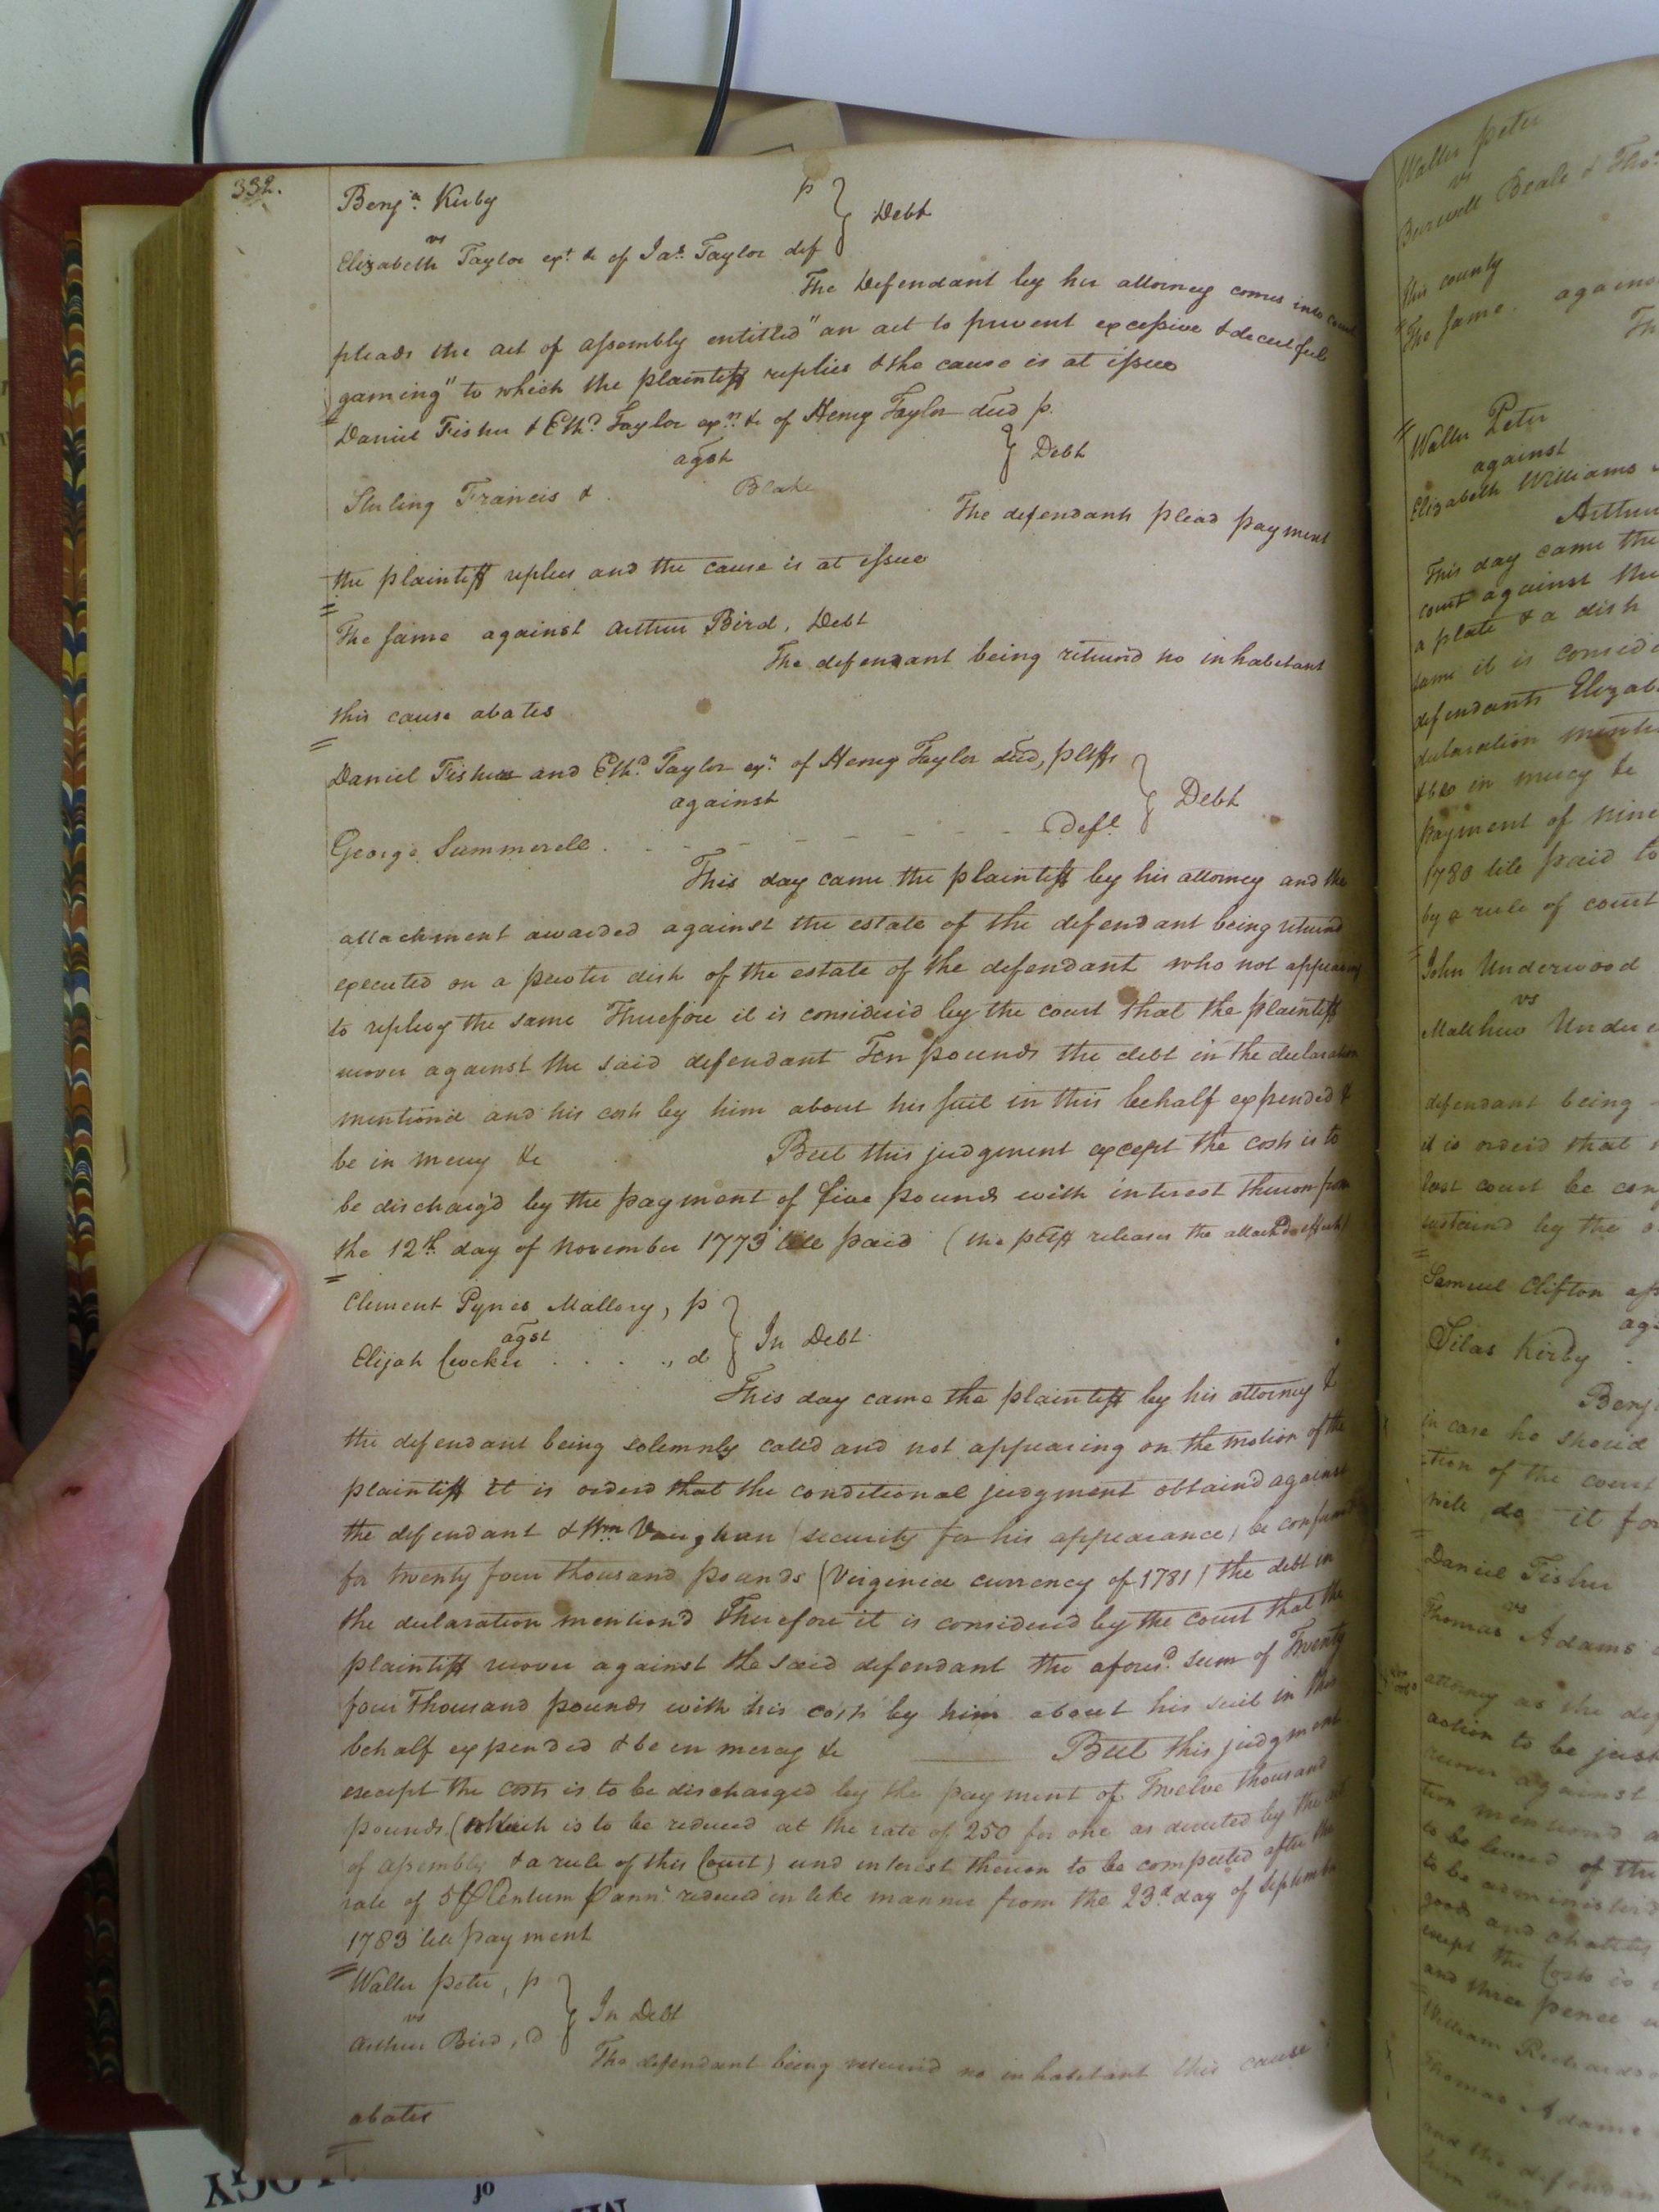 332.
Benja Kirby p
vs
Debt
Elizabeth Taylor ext &c of Jas. Taylor def
The Defendant by her attorney comes into court
pleads the act of assembly entitled "an act to prevent excessive & deceitful
gaming" to which the plaintiff replies & the cause is at issue
Daniel Fisher & Ethd Taylor exrs &c of Henry Taylor decd p.
agst
Debt
Sterling Francis & Blake
The defendants plead payment
the plaintiff replies and the cause is at issue
The same against Arthur Bird, Debt
The defendant being returnd no inhabitant
this cause abates
Daniel Fisher and Ethd Taylor exrs of Henry Taylor decd, pltffs
against
Debt
George Summerell . - - - - - - Deft
This day came the plaintiff by his attorney and the
attachment awarded against the estate of the defendant being returnd
executed on a pewter dish of the estate of the defendant who not appearing
to replevy the same Therefore it is considerd by the court that the plaintiff
recover against the said defendant Ten pounds the debt in the declaration
mentiond and his costs by him about his suit in this behalf expended &
be in mercy &c But this judgment except the costs is to
be discharg'd by the payment of five pounds with interest thereon from
the 12th day of November 1773 till paid (the pltff releases the attachd effects)
Clement Pynes Mallory, p
agst
In Debt
Elijah Crocker . . . ., d
This day came the plaintiff by his attorney &
the defendant being solemnly calld and not appearing on the motion of the
plaintiff it is orderd that the conditional judgment obtaind against
the defendant & Wm Vaughan (security for his appearance) be confirmd
for twenty four thousand pounds (Virginia currency of 1781) the debt in
the declaration mention'd Therefore it is considerd by the court that the
plaintiff recover against the said defendant the aforesd. sum of Twenty
four Thousand pounds with his costs by him about his suit in this
behalf expended & be in mercy &c —— But this judgment
except the costs is to be discharged by the payment of Twelve thousand
pounds (which is to be reduced at the rate of 250 for one as directed by the act
of assembly & a rule of this Court) and interest thereon to be computed after the
rate of 5 ⅌ Centum ⅌ ann. reduced in like manner from the 23d day of September
1783 till payment
Walter peter, p
vs
In Debt
Arthur Bird, d
The defendant being returnd no inhabitant this cause
abates
Walter peter
vs
Burwell Beale & Thos
this county
The same. against
Th
Walter Peter
against
Elizabeth Williams
Arthur
This day came the
court against the
a plate & a dish
same it is conside
defendants Elizab
declaration mentio
& be in mercy &c
payment of nine
1780 till paid to
by a rule of court
John Underwood
vs
Matthew Underw
defendant being
it is orderd that
last court be con
sustaind by the
Samuel Clifton
ag
Silas Kirby
Benj
in case he should
tion of the court
will do it for
Daniel Fisher
vs
Thomas Adams
attorney as the de
action to be just
recover against
tion mentiond a
to be levied of the
to be administerd
goods and chattels
except the Costs is
and three pence
William Richardso
Thomas Adams
and the defendan
him
OGY
of